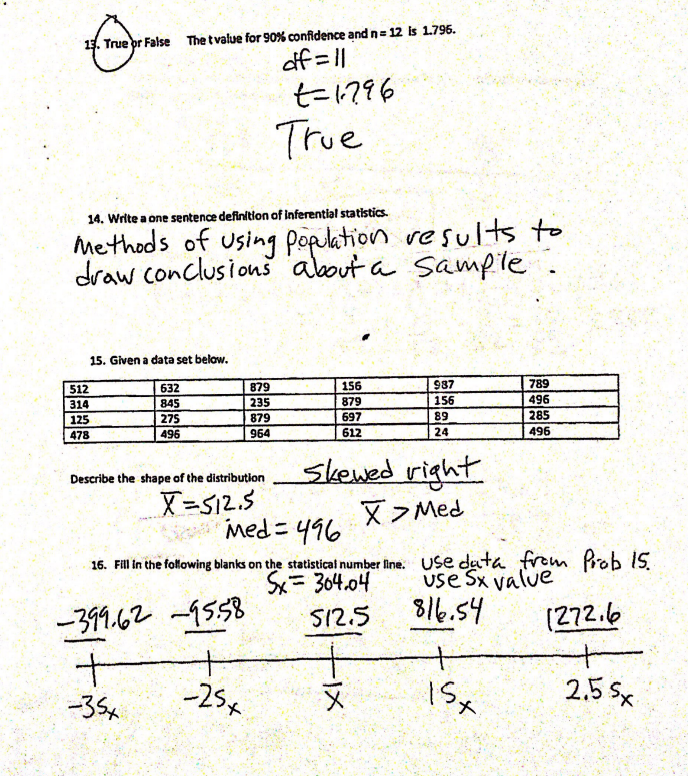 13. True or False The t value for 90% confidence and n = 12 is 1.796.
df = 11
t = 1.796
True
14. Write a one sentence definition of inferential statistics.
Methods of using population results to
draw conclusions about a sample.
15. Given a data set below.
512 632 879 156 987 789
314 845 235 879 156 496
125 275 879 697 89 285
478 496 964 612 24 496
Describe the shape of the distribution Skewed right
X̄ = 512.5 X̄ > Med
Med = 496
16. Fill in the following blanks on the statistical number line. Use data from Prob 15.
Sx = 304.04 use Sx value
-399.62 -95.58 512.5 816.54 1272.6
-3Sx -2Sx X̄ 1Sx 2.5 Sx